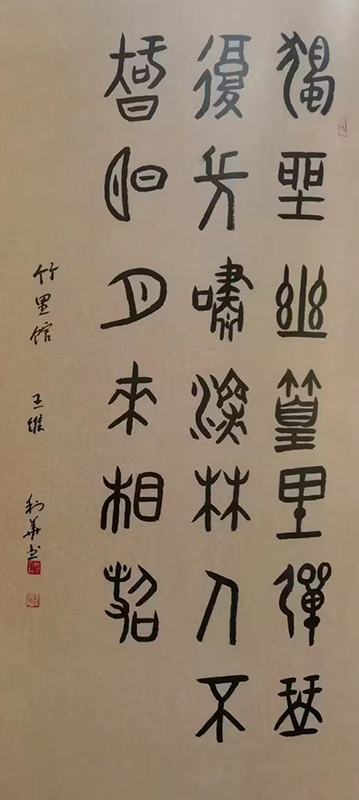 獨坐幽篁里彈琴
復長嘯深林人不
智明月來相照
竹里馆 王維 利華书